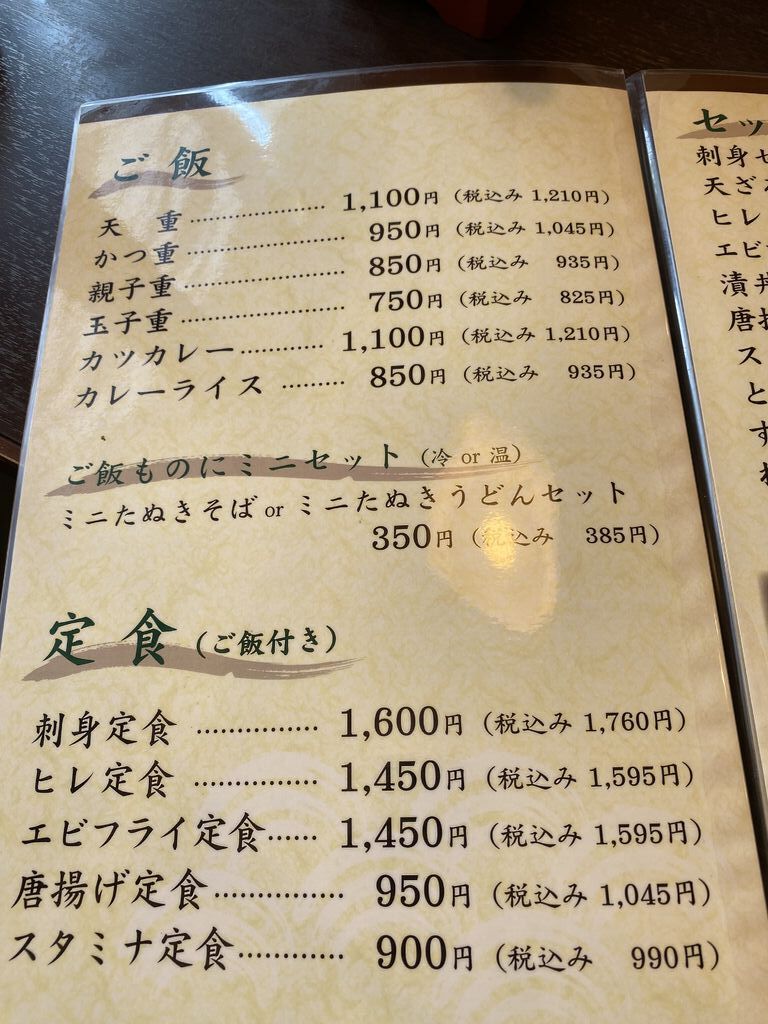 ご飯
天　重 …………………… 1,100円（税込み 1,210円）
かつ重 …………………… 950円（税込み 1,045円）
親子重 …………………… 850円（税込み　935円）
玉子重 …………………… 750円（税込み　825円）
カツカレー………… 1,100円（税込み 1,210円）
カレーライス ……… 850円（税込み　935円）
ご飯ものにミニセット（冷 or 温）
ミニたぬきそば or ミニたぬきうどんセット
350円（税込み　385円）
定食（ご飯付き）
刺身定食 …………… 1,600円（税込み 1,760円）
ヒレ定食 …………… 1,450円（税込み 1,595円）
エビフライ定食…… 1,450円（税込み 1,595円）
唐揚げ定食…………… 950円（税込み 1,045円）
スタミナ定食………… 900円（税込み　990円）
セッ
刺身
天ざ
ヒレ
エビ
漬丼
唐揚
ス
と
す